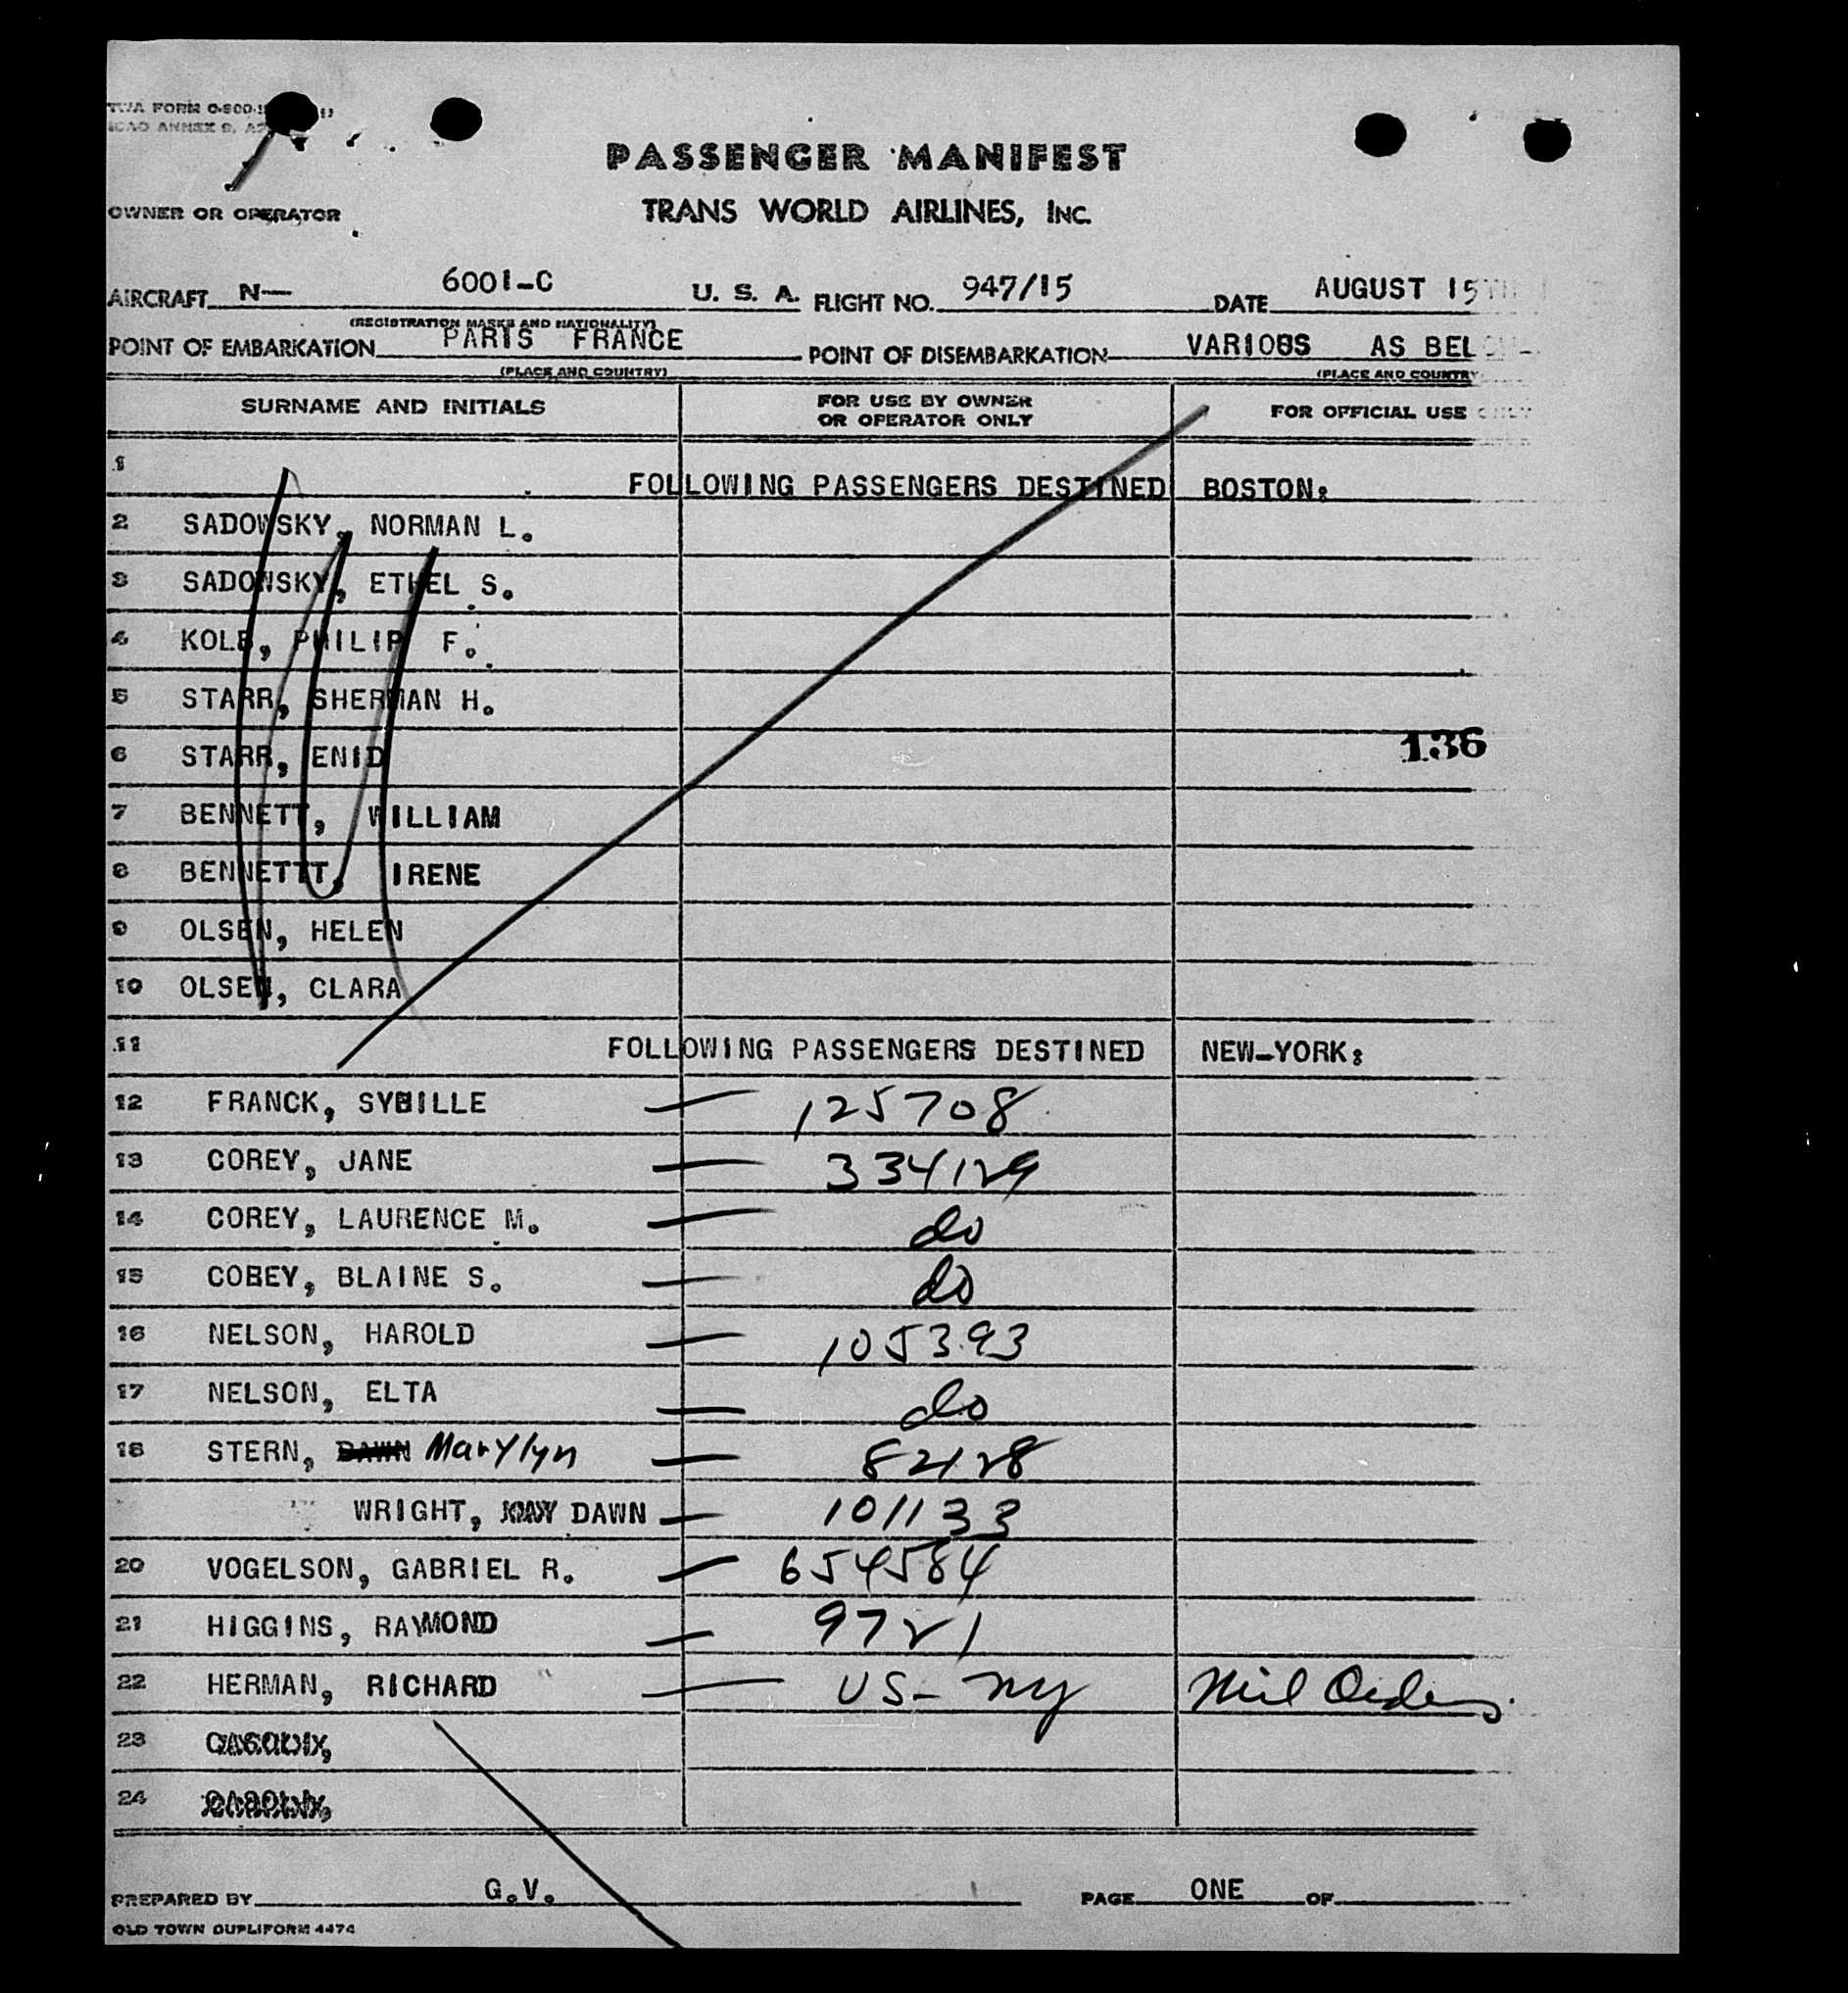 TWA FORM
ICAO ANNEX 9,
PASSENGER MANIFEST
TRANS WORLD AIRLINES, INC.
OWNER OR OPERATOR
AIRCRAFT N— 6001-C U. S. A. FLIGHT NO. 947/15 DATE AUGUST 15TH
(REGISTRATION MARKS AND NATIONALITY)
POINT OF EMBARKATION PARIS FRANCE POINT OF DISEMBARKATION VARIOUS AS BELOW
(PLACE AND COUNTRY) (PLACE AND COUNTRY
SURNAME AND INITIALS FOR USE BY OWNER OR OPERATOR ONLY FOR OFFICIAL USE ONLY
1 FOLLOWING PASSENGERS DESTINED BOSTON:
2 SADOWSKY, NORMAN L.
3 SADOWSKY, ETHEL S.
4 KOLB, PHILIP F.
5 STARR, SHERMAN H.
6 STARR, ENID
136
7 BENNETT, WILLIAM
8 BENNETTT, IRENE
9 OLSEN, HELEN
10 OLSEN, CLARA
11 FOLLOWING PASSENGERS DESTINED NEW-YORK:
12 FRANCK, SYBILLE — 125708
13 COREY, JANE — 334129
14 COREY, LAURENCE M. — do
15 COBEY, BLAINE S. — do
16 NELSON, HAROLD — 105393
17 NELSON, ELTA — do
18 STERN, DAWN Marylyn — 82128
WRIGHT, DAWN — 101133
20 VOGELSON, GABRIEL R. — 654584
21 HIGGINS, RAYMOND — 9721
22 HERMAN, RICHARD — US- NY Mil Orders
23
24
PREPARED BY G.V. PAGE ONE OF
OLD TOWN DUPLIFORM 4474